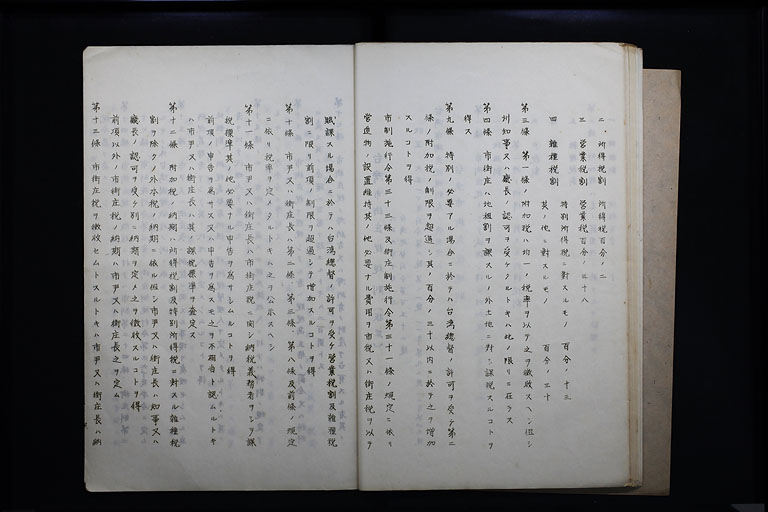 二、所得税割　所得税百分ノ二
三　營業税割　營業税百分ノ三十八
四　雜種税割
特別所得税ニ對スルモノ　百分ノ十三
其ノ他ニ對スルモノ　百分ノ三十
第三條　第一條ノ附加税ハ均一ノ税率ヲ以テ之ヲ徴收スヘシ但シ
州知事又ハ廳長ノ認可ヲ受ケタルトキハ此ノ限リニ在ラス
第四條　市街庄ハ地租割ヲ課スルノ外土地ニ對シ課税スルコトヲ
得ス
第九條　特別ノ必要アル場合ニ於テハ台灣總督ノ許可ヲ受ケ第二
條ノ附加税ノ制限ヲ超過シ其ノ百分ノ三十以内ニ於テ之ヲ增加
スルコトヲ得
市制施行令第三十三條及街庄制施行令第三十一條ノ規定ニ依リ
營造物ノ設置維持其ノ他必要ナル費用ヲ市税又ハ街庄税ヲ以テ
賦課スル場合ニ於テハ台灣總督ノ許可ヲ受ケ營業税割及雜種税
割ニ限リ前項ノ制限ヲ超過シテ增加スルコトヲ得
第十條　市尹又ハ街庄長ハ第二條、第三條、第八條及前條ノ規定
ニ依リ税率ヲ定メタルトキハ之ヲ公示スヘシ
第十一條　市尹又ハ街庄長ハ市街庄税ニ関シ納税義務者ヲシテ課
税標準其ノ他必要ナル申告ヲ爲サシムルコトヲ得
前項ノ申告ヲ爲サス又ハ申告ヲ爲スモ之ヲ不相当ト認ムルトキ
ハ市尹又ハ街庄長ハ其ノ課税標準ヲ査定ス
第十二條　附加税ノ納期ハ所得税割及特別所得税ニ對スル雜種税
割ヲ除クノ外本税ノ納期ニ依ル但シ市尹又ハ街庄長ハ知事又ハ
廳長ノ認可ヲ受ケ別ニ納期ヲ定メ之ヲ徴收スルコトヲ得
前項以外ノ市街庄税ノ納期ハ市尹又ハ街庄長之ヲ定ム
第十三條　市街庄税ヲ徴收セムトスルトキハ市尹又ハ街庄長ハ納